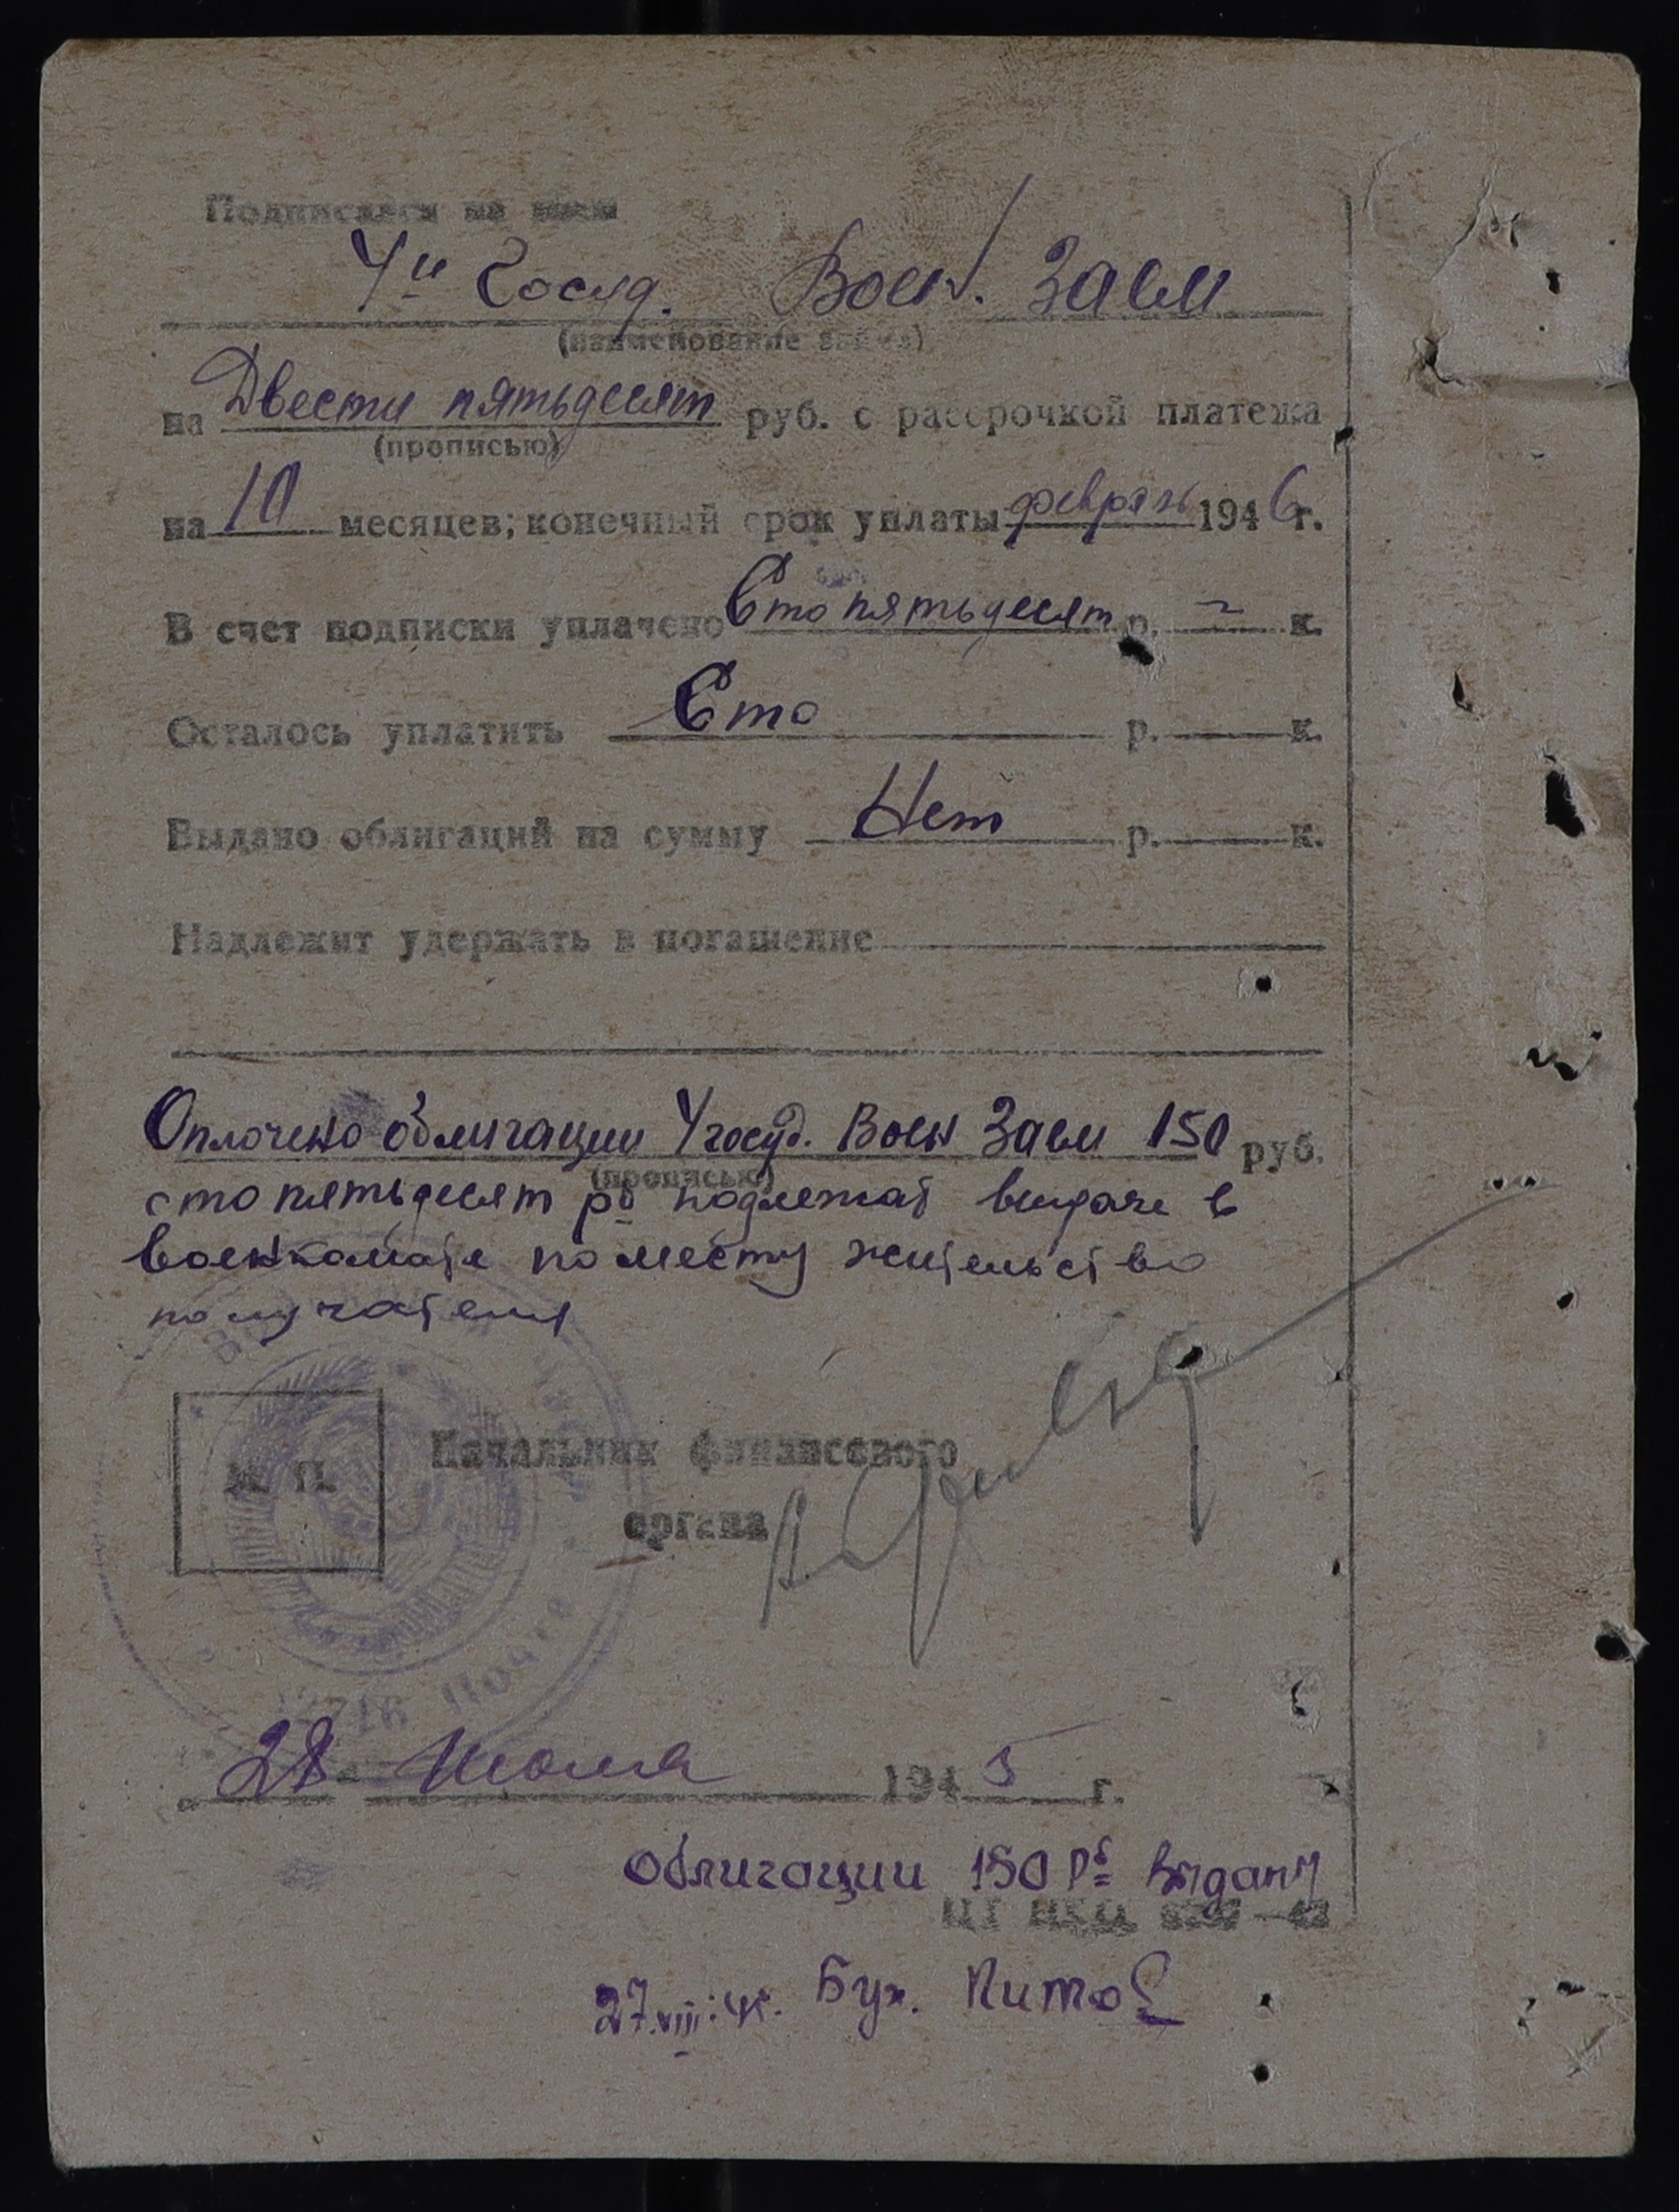 Подписался на заем
4й Госуд. Воен. Заем
(наименование займа)
на Двести пятьдесят руб. с рассрочкой платежа
(прописью)
на 10 месяцев; конечный срок уплаты февраль 1946 г.
В счет подписки уплачено Сто пятьдесят р. – к.
Осталось уплатить Сто р. к.
Выдано облигаций на сумму Нет р. к.
Надлежит удержать в погашение
Оплочено облигации 4 госуд. Воен Заем 150 руб.
(прописью)
сто пятьдесят рб подлежат выдаче в
военкомате по месту жительство
получателя
М. П.
Начальник финансового
органа
Почта
28 Июля 1945 г.
Облигации 150 Рб Выданы
27.VIII.45. Бух. Китов